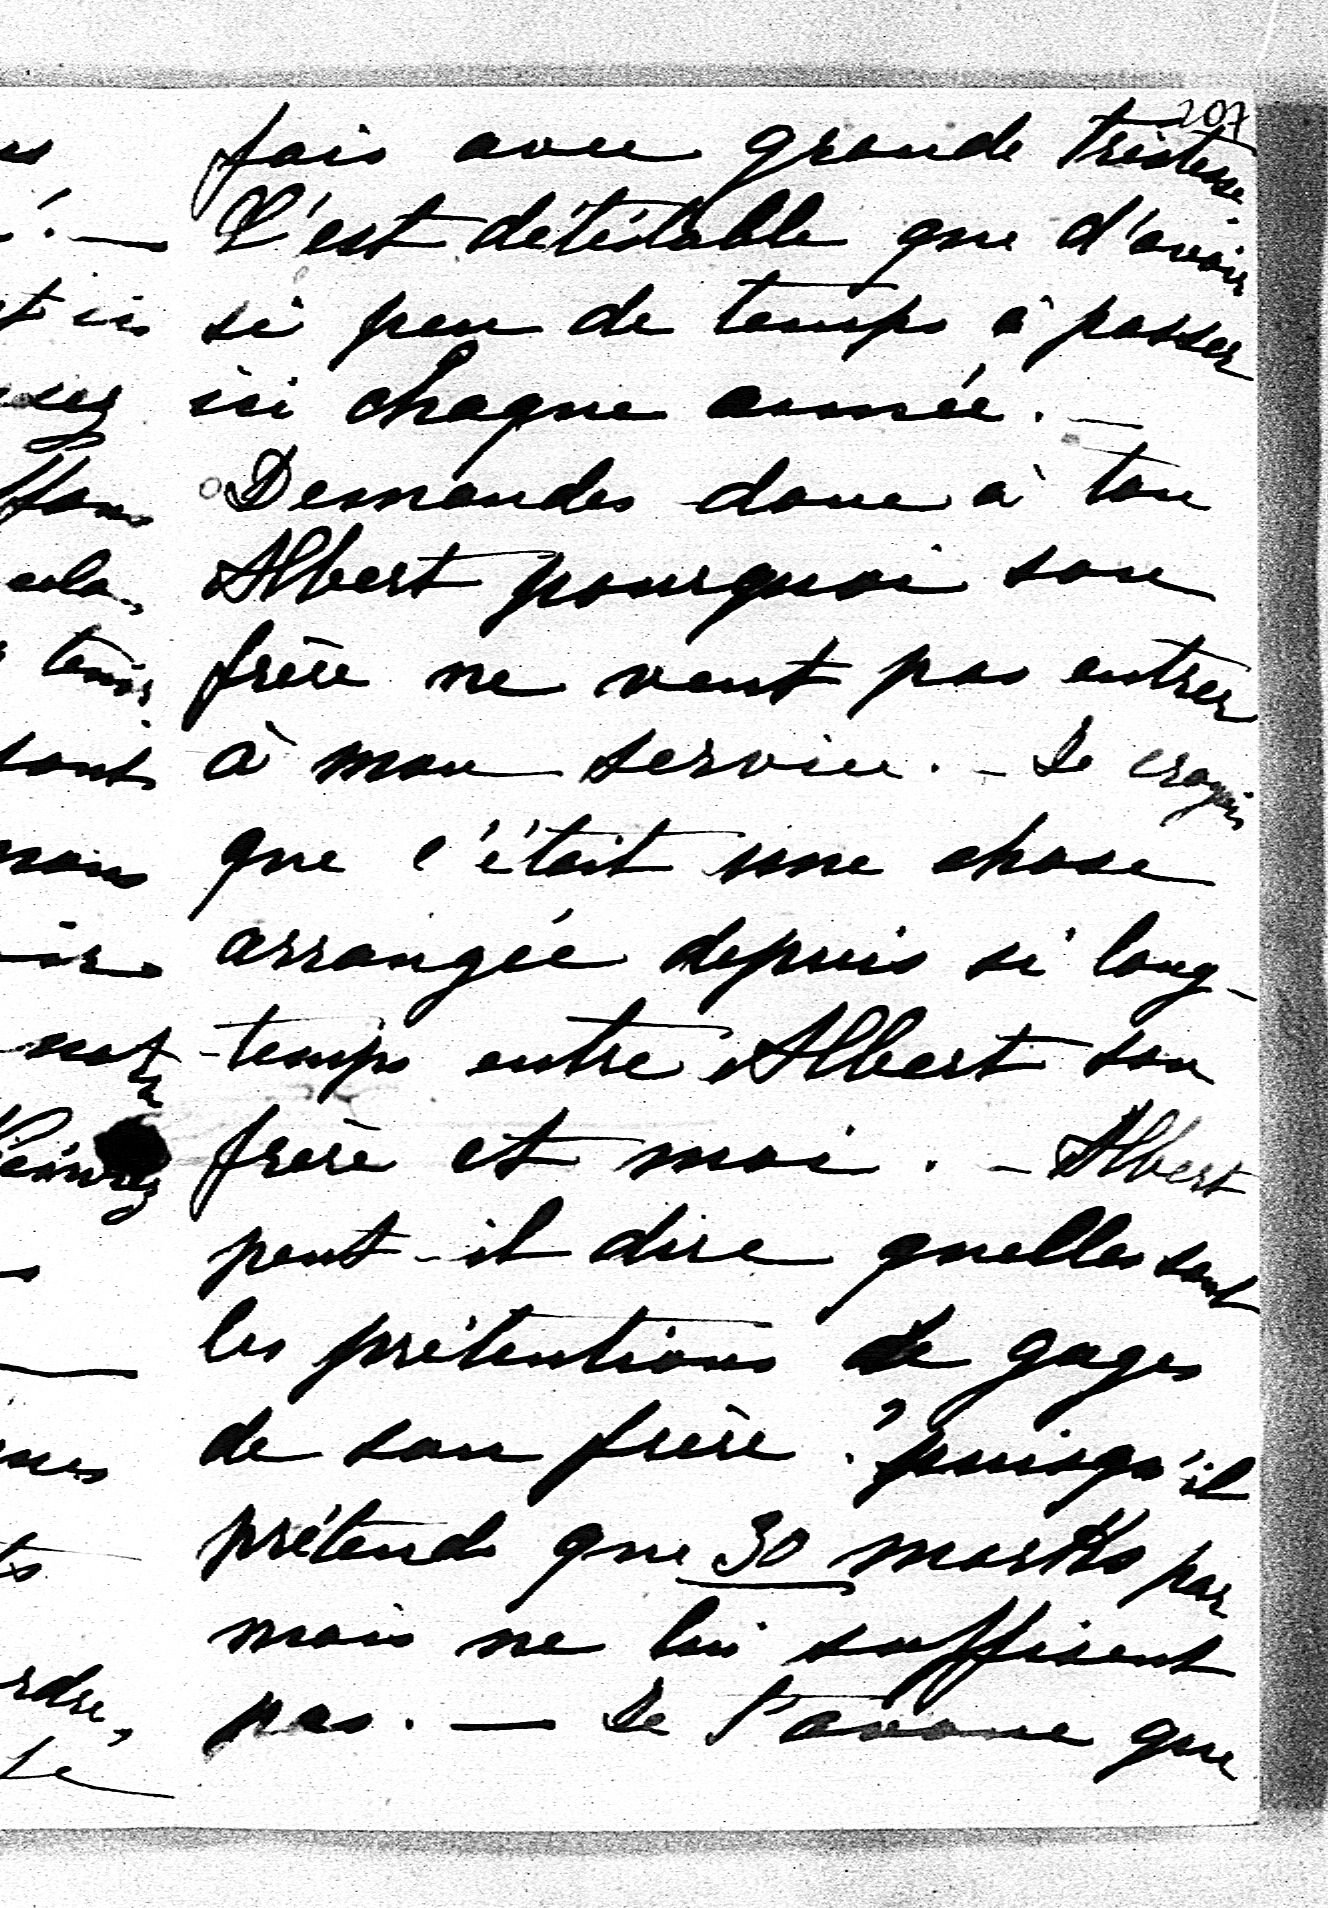 207
fais avec grande tristesse.
C'est détéstable que d'avoir
si peu de temps à passer
ici chaque année. —
Demandes donc à ton
Albert pourquoi son
frère ne veut pas entrer
à mon service. – Je croyais
que c'était une chose
arrangée depuis si long-
-temps entre Albert son
frère et moi. – Albert
peut-il dire quelles sont
les prétentions de gages
de son frère ? puisqu'il
prétend que 30 marks par
mois ne lui suffisent
pas. — Je t'avoue que